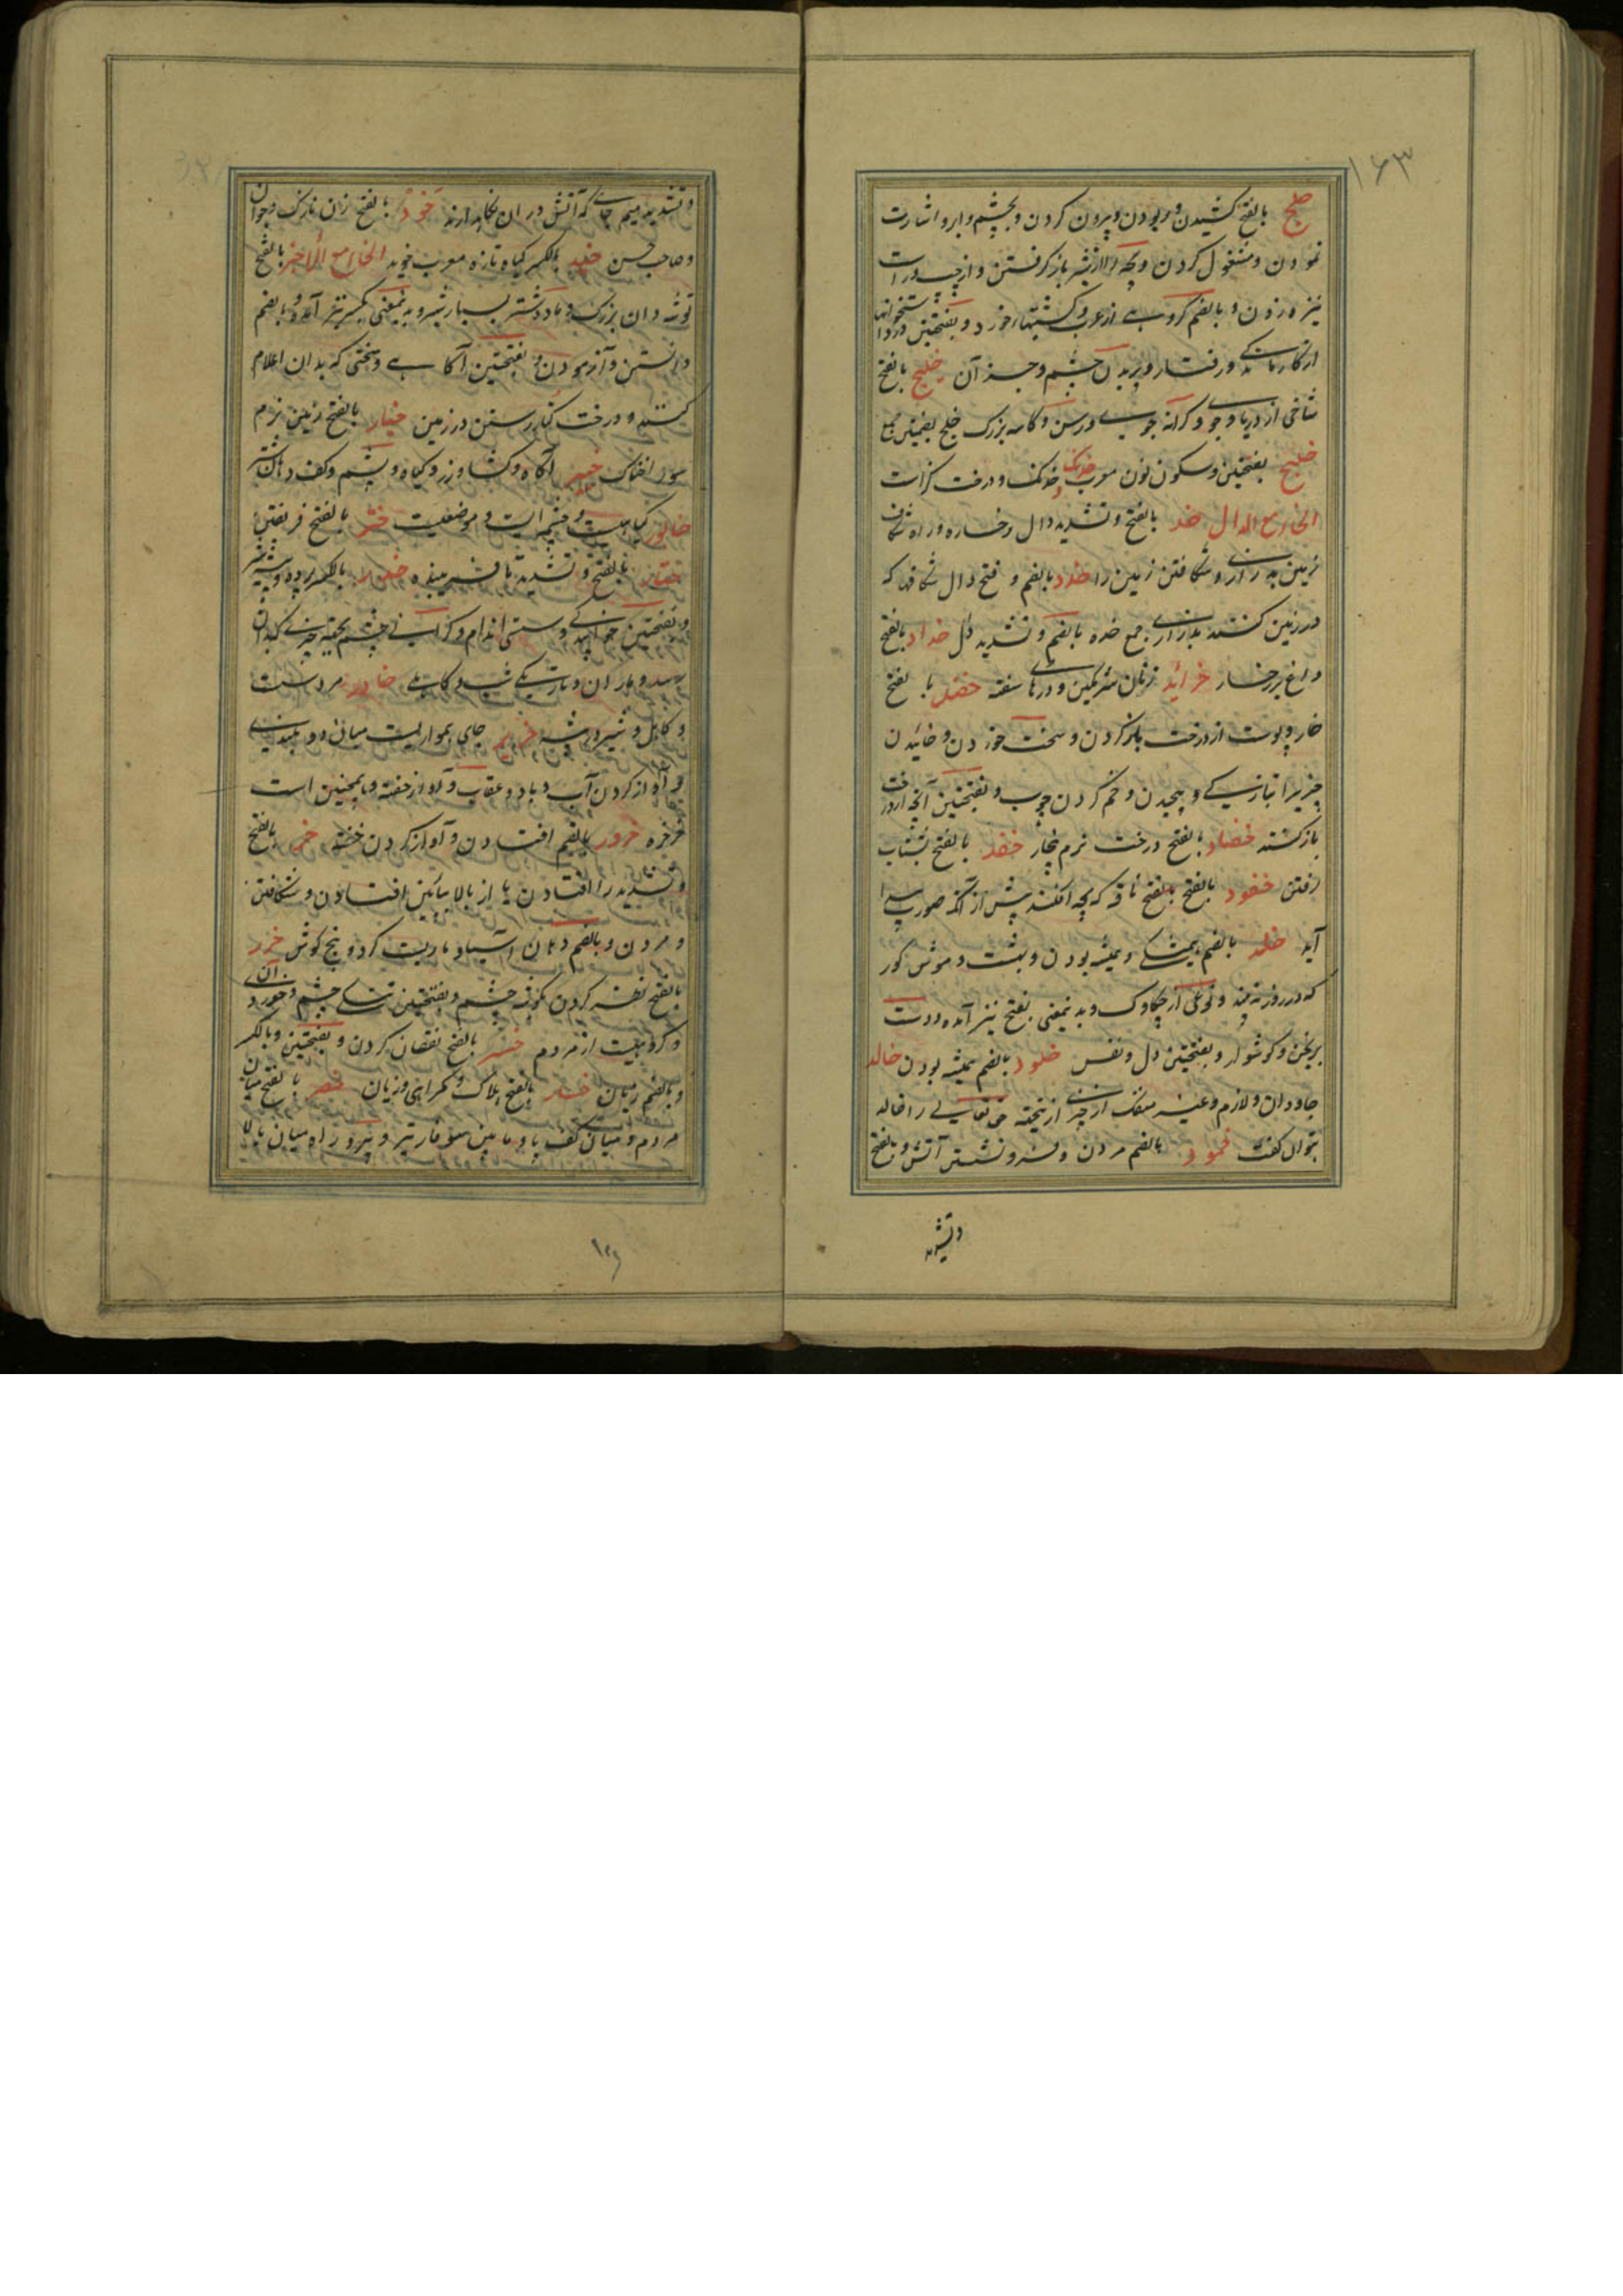 ۱۶۳
خلج بالفتح کشیدن و ربودن و بیرون کردن و بچشم و ابرو اشارت
نمودن و مشغول کردن و بچه را از شیر باز گرفتن و از چپ و راست
نیزه زدن و بالضم گروهی از عرب و کشتیهاء خورد و بفتحتین درد استخوانها
از کار ماندگی و رفتار و پریدن چشم و جز آن خلیج بالفتح
شاخی از دریا و جوی و کرانه جوی و رسن و کاسه بزرگ خلج بضمتین جمع
خلنج بفتحتین و سکون نون معرب خدنگ و درخت گز است
الخاء مع الدال خد بالفتح و تشدید دال رخساره و راه شکافن
زمین به درازی و شکافتن زمین را خدد بالضم و فتح دال شکافها که
در زمین کنند بدرازی جمع خده بالضم و تشدید دال خداد بالفتح
داغ بر رخسار خرائد زنان شرمگین و درهاء ناسفته خضد بالفتح
خار و پوست از درخت باز کردن و سخت خوردن و خائیدن
چیزیرا بتازیکے و پیچیدن و خم کردن چوب و بفتحتین آنچه از درخت
باز کشته خضاد بالفتح درخت نرم بیخار خفد بالفتح بشتاب
رفتن خفود بالفتح ناقه که بچه افکند پیش از آنکه صورت پیدا
آید خلد بالضم همیشگی و همیشه بودن و بهشت و موش کور
که در روز نه بیند و نوعی از چکاوک و به نیمعنی بفتح نیز آمده و دست
برنجن و گوشوار و بفتحتین دل و نفس خلود بالضم همیشه بودن خالد
جاودان و لازم و غیر منفک از چیزی ازینجهة حق تعالی را خالد
نتوان گفت خمود بالضم مردن و فرو نشستن آتش و بالفتح
و تشدید
و تشدید میم جائے که آتش در ان نگاهدارند خود بالفتح زن نازک و جوان
و صاحب حسن خید بالکسر گیاه تازه معرب خوید الخاء مع الراء خبر بالفتح
توشه دان بزرگ و ماده شتر بسیار شیر و به نیمعنی بکسر نیز آمده و بالضم
دانستن و آزمودن و بفتحتین آگاهی و سخنی که بدان اعلام
کنند و درخت کنار رستن در زمین خبار بالفتح زمین نرم
سوراخناک خبیر آگاه و کشاورز و گیاه و پشم و کف دهان شتر
خابور گیاهیست و چشمه ایست و موضعیست ختر بالفتح فریفتن
ختار بالفتح و تشدید تا فریبنده خدر بالکسر پرده و بیشه شیر
و بفتحتین خوابیدگی و سستی اندام و گرانی چشم بجهة چیزی که بدان
رسد و باران و تاریکی شب و کاهلی خادر مرد سست
و کاهل و شیر در بیشه خریر جای هموار پست میان دو بلندی
و آواز کردن آب و باد و عقاب و آواز خفته و همچنین است
خرخره خرور بالضم افتادن و آواز کردن خفته خر بالفتح
و تشدید را افتادن یا از بالا بپائین افتادن و شکافتن
و مردن و بالضم دهان آسیا و ماریست گرد و بیخ گوش خزر
بالفتح نظر کردن بگوشه چشم و بفتحتین تنگی چشم و خوردی آن
و گروهیست از مردم خسر بالفتح نقصان کردن و بفتحتین و بالکسر
و بالضم زیان خسار بالفتح هلاک و گمراهی و زیان خصر بالفتح میان
مردم و میان کف پا و مابین سوفار تیر و پر و راه میان بالا